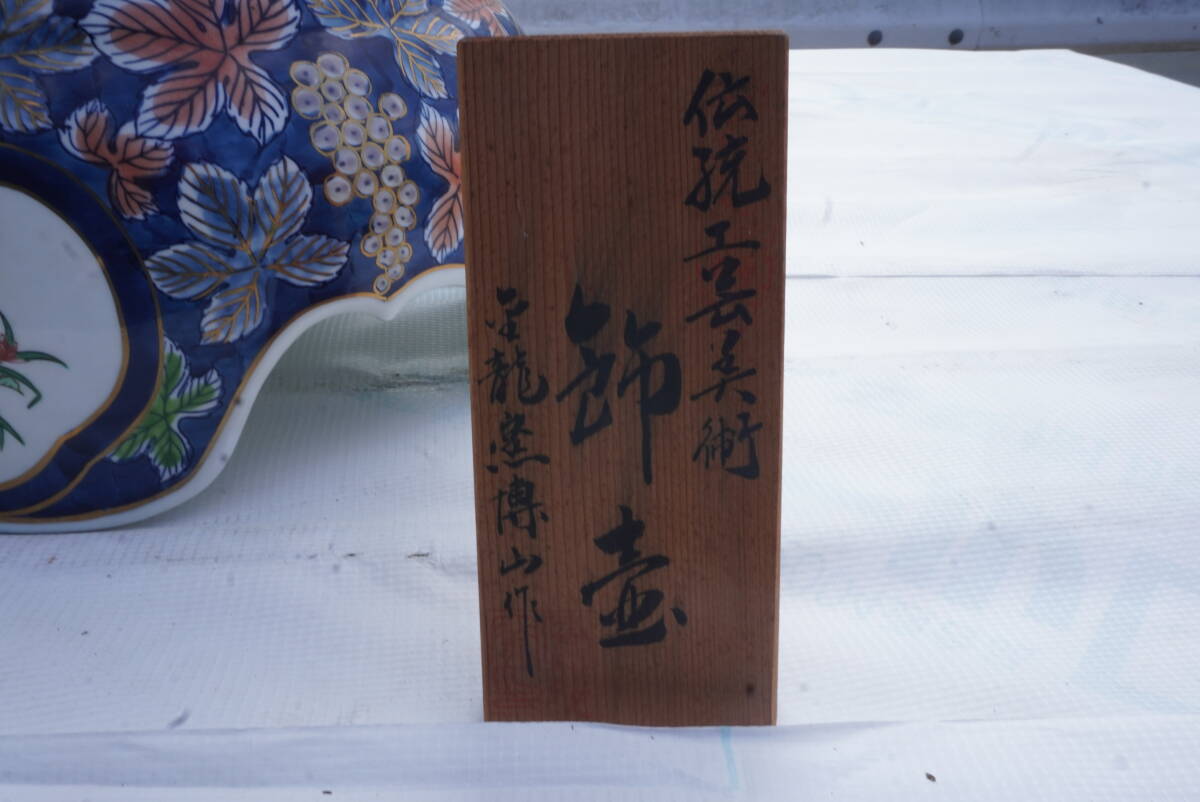 伝統工芸美術
飾壺
金龍窯博山作